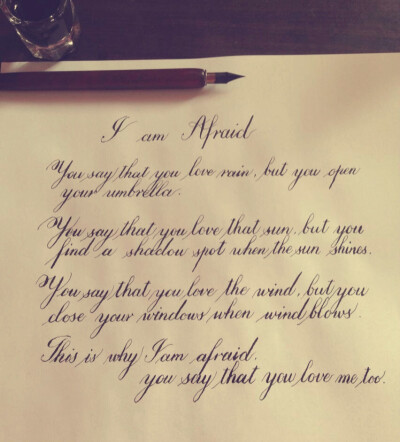 I am Afraid
You say that you love rain, but you open
your umbrella.
You say that you love that sun, but you
find a shadow spot when the sun shines.
You say that you love the wind, but you
close your windows when wind blows.
This is why I am afraid.
you say that you love me too.